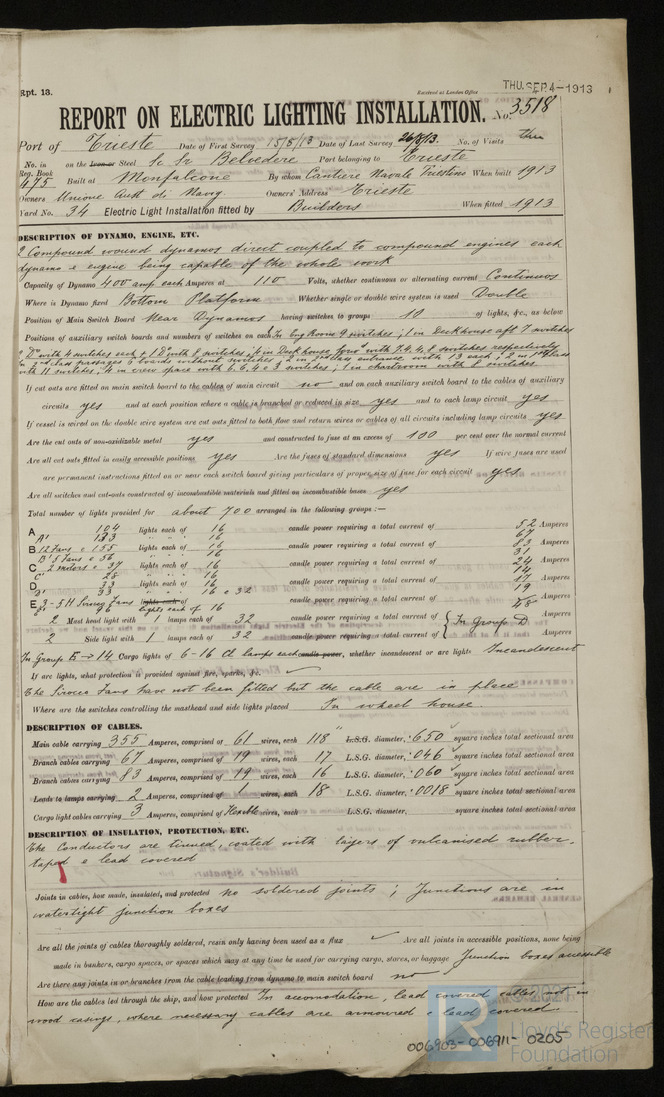 Rpt. 13.
Received at London Office
THU. SEP. 4 - 1913
REPORT ON ELECTRIC LIGHTING INSTALLATION. No. 3518
Port of Trieste Date of First Survey 15/5/13 Date of Last Survey 26/8/13. No. of Visits
No. in Reg. Book 475 on the Iron or Steel Sc Sr Belvedere Port belonging to Trieste
Built at Monfalcone By whom Cantiere Navale Triestino When built 1913
Owners Unione Aust di Navig Owners' Address Trieste
Yard No. 34 Electric Light Installation fitted by Builders When fitted 1913
DESCRIPTION OF DYNAMO, ENGINE, ETC.
2 Compound wound dynamos direct coupled to compound engines each
dynamo & engine being capable of the whole work
Capacity of Dynamo 400 amp each Amperes at 110 Volts, whether continuous or alternating current Continuous
Where is Dynamo fixed Bottom Platform Whether single or double wire system is used Double
Position of Main Switch Board Near Dynamos having switches to groups 10 of lights, &c., as below
Positions of auxiliary switch boards and numbers of switches on each In Eng Room 9 switches; 1 in Deckhouse aft 7 switches
2 Do with 4 switches each & 1 Do with 8 switches; 4 in Deckhouse forwd with 7.9.4.8 switches respectively
with 11 switches; 4 in crew space with 6.6.4 & 3 switches; 1 in chartroom with 8 switches.
If cut outs are fitted on main switch board to the cables of main circuit no and on each auxiliary switch board to the cables of auxiliary
circuits yes and at each position where a cable is branched or reduced in size yes and to each lamp circuit yes
If vessel is wired on the double wire system are cut outs fitted to both flow and return wires or cables of all circuits including lamp circuits yes
Are the cut outs of non-oxidizable metal yes and constructed to fuse at an excess of 100 per cent over the normal current
Are all cut outs fitted in easily accessible positions yes Are the fuses of standard dimensions yes If wire fuses are used
are permanent instructions fitted on or near each switch board giving particulars of proper size of fuse for each circuit yes
Are all switches and cut-outs constructed of incombustible materials and fitted on incombustible bases yes
Total number of lights provided for about 700 arranged in the following groups :—
A 104 lights each of 16 candle power requiring a total current of 52 Amperes
A' 133 " " 16 67
B 12 Fans & 155 lights each of 16 candle power requiring a total current of 83 Amperes
B' 5 Fans & 56 16 31
C 2 motors & 37 lights each of 16 candle power requiring a total current of 24 Amperes
C' 28 16 14
D 33 lights each of 16 candle power requiring a total current of 17 Amperes
D' 33 16 & 32 19
E 3-5H Sirocco Fans lights each of
96 lights each of 16 candle power requiring a total current of 48 Amperes
2 Mast head light with 1 lamps each of 32 candle power requiring a total current of In Group D Amperes
2 Side light with 1 lamps each of 32 candle power requiring a total current of Amperes
In Group E → 14 Cargo lights of 6-16 Cl. lamps each candle power, whether incandescent or arc lights Incandescent
If arc lights, what protection is provided against fire, sparks, &c.
The Sirocco Fans have not been fitted but the cable are in place
Where are the switches controlling the masthead and side lights placed In wheel house.
DESCRIPTION OF CABLES.
Main cable carrying 355 Amperes, comprised of 61 wires, each 118" L.S.G. diameter, .650 square inches total sectional area
Branch cables carrying 67 Amperes, comprised of 19 wires, each 17 L.S.G. diameter, .046 square inches total sectional area
Branch cables carrying 83 Amperes, comprised of 19 wires, each 16 L.S.G. diameter, .060 square inches total sectional area
Leads to lamps carrying 2 Amperes, comprised of 1 wires, each 18 L.S.G. diameter, .0018 square inches total sectional area
Cargo light cables carrying 3 Amperes, comprised of Flexible wires, each L.S.G. diameter, square inches total sectional area
DESCRIPTION OF INSULATION, PROTECTION, ETC.
The Conductors are tinned, coated with layers of vulcanised rubber,
taped & lead covered
Joints in cables, how made, insulated, and protected No soldered joints; Junctions are in
watertight junction boxes
Are all the joints of cables thoroughly soldered, resin only having been used as a flux ✓ Are all joints in accessible positions, none being
made in bunkers, cargo spaces, or spaces which may at any time be used for carrying cargo, stores, or baggage Junction boxes accessible
Are there any joints in or branches from the cable leading from dynamo to main switch board no
How are the cables led through the ship, and how protected In accomodation, lead covered cables in
wood casings, where necessary cables are armoured & lead covered
© 2021
Lloyd's Register
Foundation
006903-006911-0205